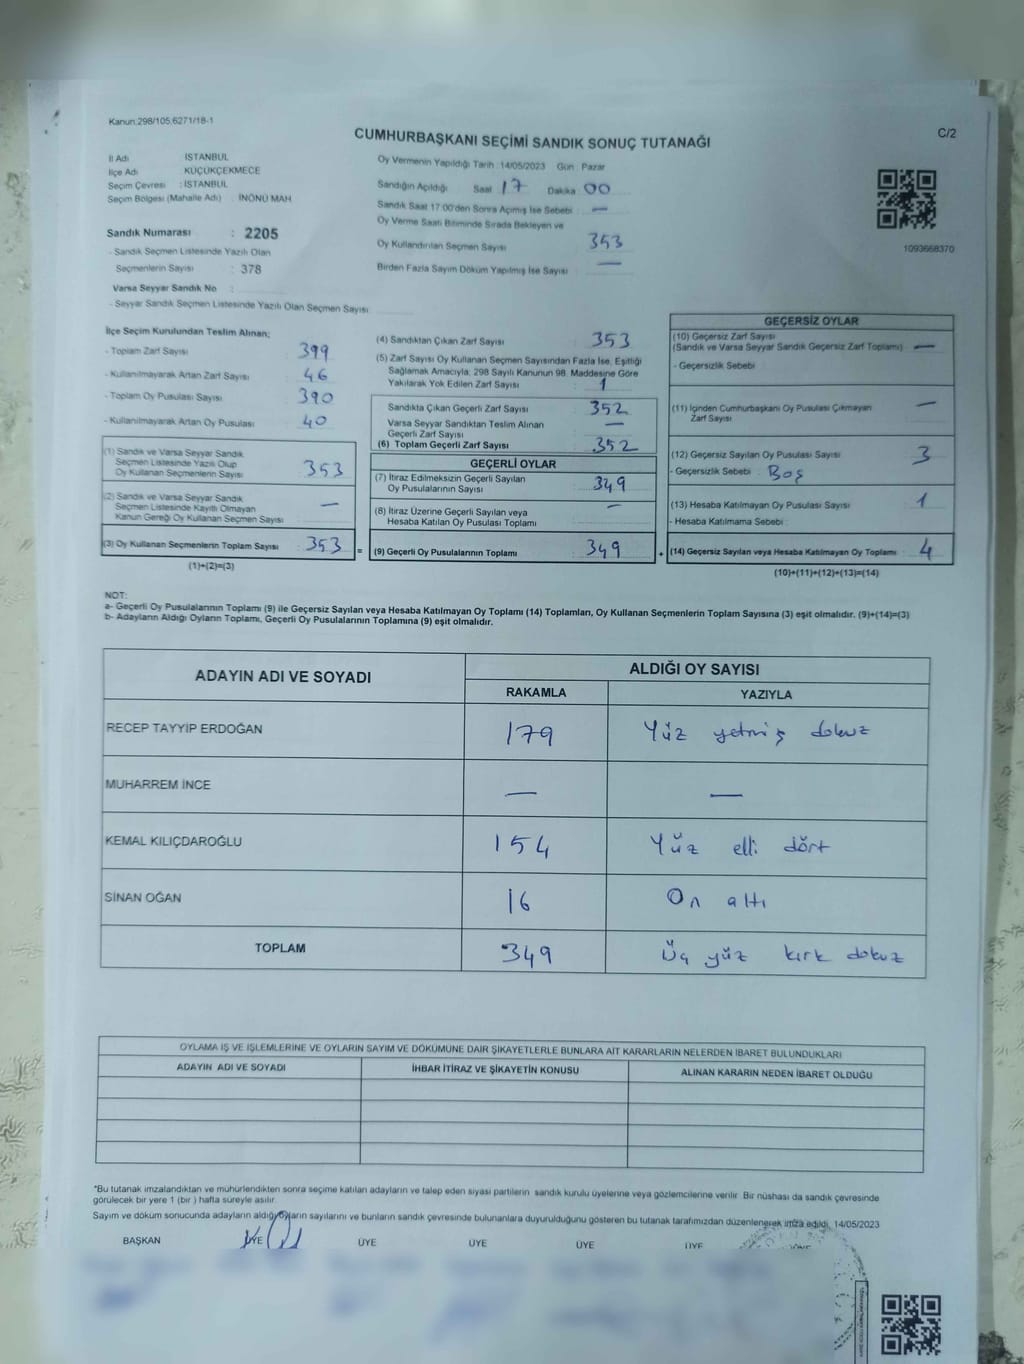 Kanun:298/105,6271/18-1
C/2
CUMHURBAŞKANI SEÇİMİ SANDIK SONUÇ TUTANAĞI
İl Adı İSTANBUL
İlçe Adı KÜÇÜKÇEKMECE
Seçim Çevresi : İSTANBUL
Seçim Bölgesi (Mahalle Adı) : İNÖNÜ MAH
Sandık Numarası : 2205
- Sandık Seçmen Listesinde Yazılı Olan
Seçmenlerin Sayısı : 378
Varsa Seyyar Sandık No :
- Seyyar Sandık Seçmen Listesinde Yazılı Olan Seçmen Sayısı
Oy Vermenin Yapıldığı Tarih :14/05/2023 Gün : Pazar
Sandığın Açıldığı Saat 17 Dakika 00
Sandık Saat 17:00'den Sonra Açımış İse Sebebi : —
Oy Verme Saati Bitiminde Sırada Bekleyen ve
Oy Kullandırılan Seçmen Sayısı 353
Birden Fazla Sayım Döküm Yapılmış İse Sayısı —
1093668370
İlçe Seçim Kurulundan Teslim Alınan;
- Toplam Zarf Sayısı 399
- Kullanılmayarak Artan Zarf Sayısı 46
- Toplam Oy Pusulası Sayısı 390
- Kullanılmayarak Artan Oy Pusulası 40
(1) Sandık ve Varsa Seyyar Sandık
Seçmen Listesinde Yazılı Olup
Oy Kullanan Seçmenlerin Sayısı 353
(2) Sandık ve Varsa Seyyar Sandık
Seçmen Listesinde Kayıtlı Olmayan
Kanun Gereği Oy Kullanan Seçmen Sayısı —
(3) Oy Kullanan Seçmenlerin Toplam Sayısı 353 =
(1)+(2)=(3)
(4) Sandıktan Çıkan Zarf Sayısı 353
(5) Zarf Sayısı Oy Kullanan Seçmen Sayısından Fazla İse, Eşitliği
Sağlamak Amacıyla; 298 Sayılı Kanunun 98. Maddesine Göre
Yakılarak Yok Edilen Zarf Sayısı 1
Sandıkta Çıkan Geçerli Zarf Sayısı 352
Varsa Seyyar Sandıktan Teslim Alınan
Geçerli Zarf Sayısı —
(6) Toplam Geçerli Zarf Sayısı 352
GEÇERLİ OYLAR
(7) İtiraz Edilmeksizin Geçerli Sayılan
Oy Pusulalarının Sayısı 349
(8) İtiraz Üzerine Geçerli Sayılan veya
Hesaba Katılan Oy Pusulası Toplamı —
(9) Geçerli Oy Pusulalarının Toplamı 349 +
GEÇERSİZ OYLAR
(10) Geçersiz Zarf Sayısı
(Sandık ve Varsa Seyyar Sandık Geçersiz Zarf Toplamı) —
- Geçersizlik Sebebi
(11) İçinden Cumhurbaşkanı Oy Pusulası Çıkmayan
Zarf Sayısı —
(12) Geçersiz Sayılan Oy Pusulası Sayısı 3
- Geçersizlik Sebebi : Boş
(13) Hesaba Katılmayan Oy Pusulası Sayısı 1
- Hesaba Katılmama Sebebi :
(14) Geçersiz Sayılan veya Hesaba Katılmayan Oy Toplamı 4
(10)+(11)+(12)+(13)=(14)
NOT:
a- Geçerli Oy Pusulalarının Toplamı (9) ile Geçersiz Sayılan veya Hesaba Katılmayan Oy Toplamı (14) Toplamları, Oy Kullanan Seçmenlerin Toplam Sayısına (3) eşit olmalıdır. (9)+(14)=(3)
b- Adayların Aldığı Oyların Toplamı, Geçerli Oy Pusulalarının Toplamına (9) eşit olmalıdır.
ADAYIN ADI VE SOYADI ALDIĞI OY SAYISI
RAKAMLA YAZIYLA
RECEP TAYYİP ERDOĞAN 179 Yüz yetmiş dokuz
MUHARREM İNCE — —
KEMAL KILIÇDAROĞLU 154 Yüz elli dört
SİNAN OĞAN 16 On altı
TOPLAM 349 Üç yüz kırk dokuz
OYLAMA İŞ VE İŞLEMLERİNE VE OYLARIN SAYIM VE DÖKÜMÜNE DAİR ŞİKAYETLERLE BUNLARA AİT KARARLARIN NELERDEN İBARET BULUNDUKLARI
ADAYIN ADI VE SOYADI İHBAR İTİRAZ VE ŞİKAYETİN KONUSU ALINAN KARARIN NEDEN İBARET OLDUĞU
*Bu tutanak imzalandıktan ve mühürlendikten sonra seçime katılan adayların ve talep eden siyasi partilerin sandık kurulu üyelerine veya gözlemcilerine verilir. Bir nüshası da sandık çevresinde
görülecek bir yere 1 (bir ) hafta süreyle asılır.
Sayım ve döküm sonucunda adayların aldığı oyların sayılarını ve bunların sandık çevresinde bulunanlara duyurulduğunu gösteren bu tutanak tarafımızdan düzenlenerek imza edildi. 14/05/2023
BAŞKAN ÜYE ÜYE ÜYE ÜYE ÜYE